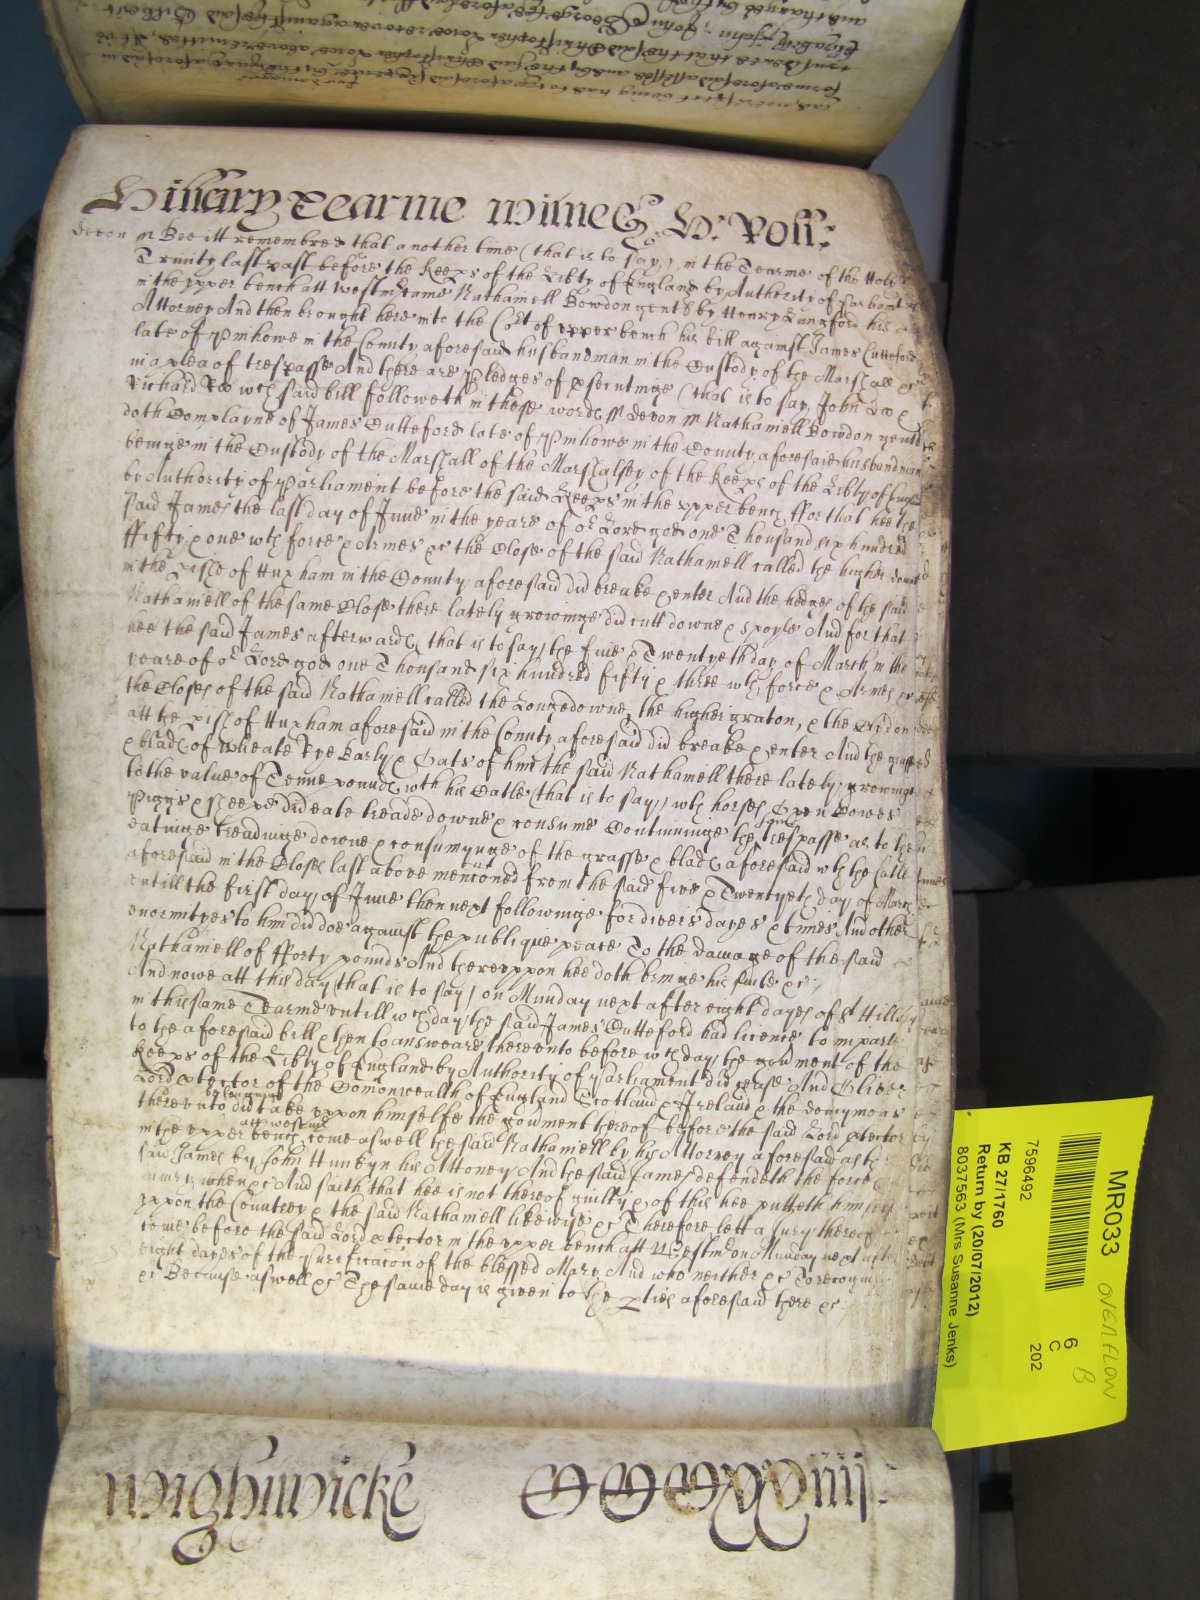 Hillary Tearme
Devon ss Bee itt remembred that another time (that is to say) in the Tearme of the Holy
Trinity last past before the Keeps of the Libty of England by Authority of Parliamt
in the upper bench att Westmr came Nathaniell Bowdon gent by Henry Langford his
Attorney And then brought here into the Cort of upper bench his bill against James Cutteford
late of Pinhowe in the County aforesaid husbandman in the Custody of the Marshall &c
in a plea of trespasse And there are pledges of psecutinge (that is to say) John Doo &
Richard Roo wch said bill followeth in these words ss Devon ss Nathaniell Bowdon gent
doth Complayne of James Cutteford late of Pinhowe in the County aforesaid husbandman
beinge in the Custody of the Marshall of the Marshalsey of the Keeps of the Libty of Engl
by Authority of Parliament before the said Keeps in the upper bench ffor that hee the
said James the last day of June in the yeare of or Lord god one Thousand six hundred
ffifty & one wth force & Armes &c the Close of the said Nathaniell called the higher downe
in the pish of Huxham in the County aforesaid did breake & enter And the hedges of the said
Nathaniell of the same Close there lately growinge did cutt downe & spoyle And for that
hee the said James afterwards that is to say the five & Twentyeth day of March in the
yeare of or Lord god one Thousand six hundred fifty & three wth force & Armes &c
the Closes of the said Nathaniell called the Longedowne, the higher graton, & the
att the pish of Huxham aforesaid in the County aforesaid did breake & enter And the grasse
& blads of Wheate Rye Barly & Oats of him the said Nathaniell there lately growinge
to the value of Tenne pounds wth his Catle (that is to say) wth horses Oxen Cowes
Piggs & sheepe did eate treade downe & consume Continuinge the said trespasse as to the
eatinge treadinge downe & consumynge of the grasse & blads aforesaid wth the Catle
aforesaid in the Closes last above mencioned from the said five & Twentyeth day of March
untill the first day of June then next followinge for divers dayes & times And other
enormityes to him did doe against the publique peace To the damage of the said
Nathaniell of fforty pounds And thereuppon hee doth bringe his suite &c
And nowe att this day (that is to say) on Munday next after eight dayes of St Hillary
in this same Tearme untill wch day the said James Cutteford had licence to imparle
to the aforesaid bill & then to answeare thereunto before wch day the govment of the
Keeps of the Libty of England by Authority of Parliament did cease And Oliver
Lord ptector of the Comonwealth of England Scotland & Ireland & the dominyons
thereunto belonginge did take uppon himselfe the govment thereof before the said Lord ptector
in the upper bench att Westmr come aswell the said Nathaniell by his Attorney aforesaid as the
said James by John Hunkyn his Attorney And the said James defendeth the force &
iniury when &c And saith that hee is not thereof guilty & of this hee putteth himself
uppon the Countrey & the said Nathaniell likewyse &c Therefore lett a Jury thereof
come before the said Lord ptector in the upper bench att Westmr on Munday next after
eight dayes of the Purificacon of the blessed Mary And who neither &c To recogn
&c Because aswell &c The same day is given to the pties aforesaid there &c
Wightwicke
MR033
7596492
KB 27/1760
Return by (20/07/2012)
8037563 (Mrs Susanne Jenks)
6
C
202
OVERFLOW
B